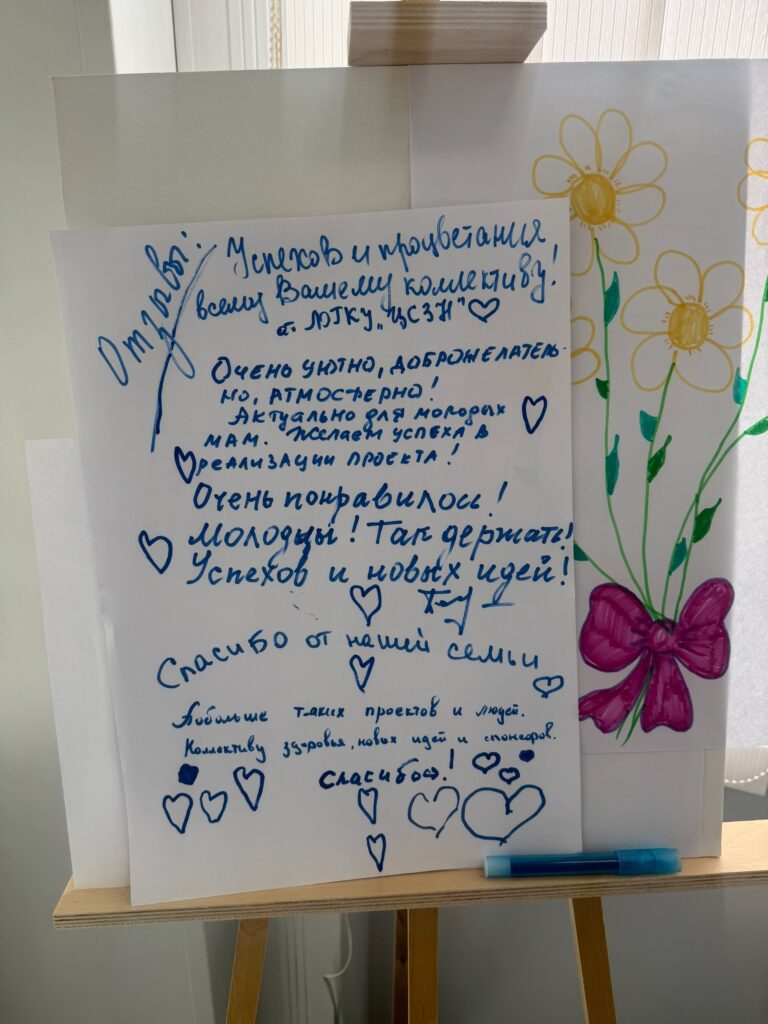 Отзывы:
Успехов и процветания
всему Вашему коллективу!
от МГКУ "ЦСЗН"
Очень уютно, доброжелатель-
но, атмосферно!
Актуально для молодых
мам. Желаем успеха в
реализации проекта!
Очень понравилось!
Молодцы! Так держать!
Успехов и новых идей!
Спасибо от нашей семьи
Побольше таких проектов и людей.
Коллективу здоровья, новых идей и спонсоров.
Спасибо!